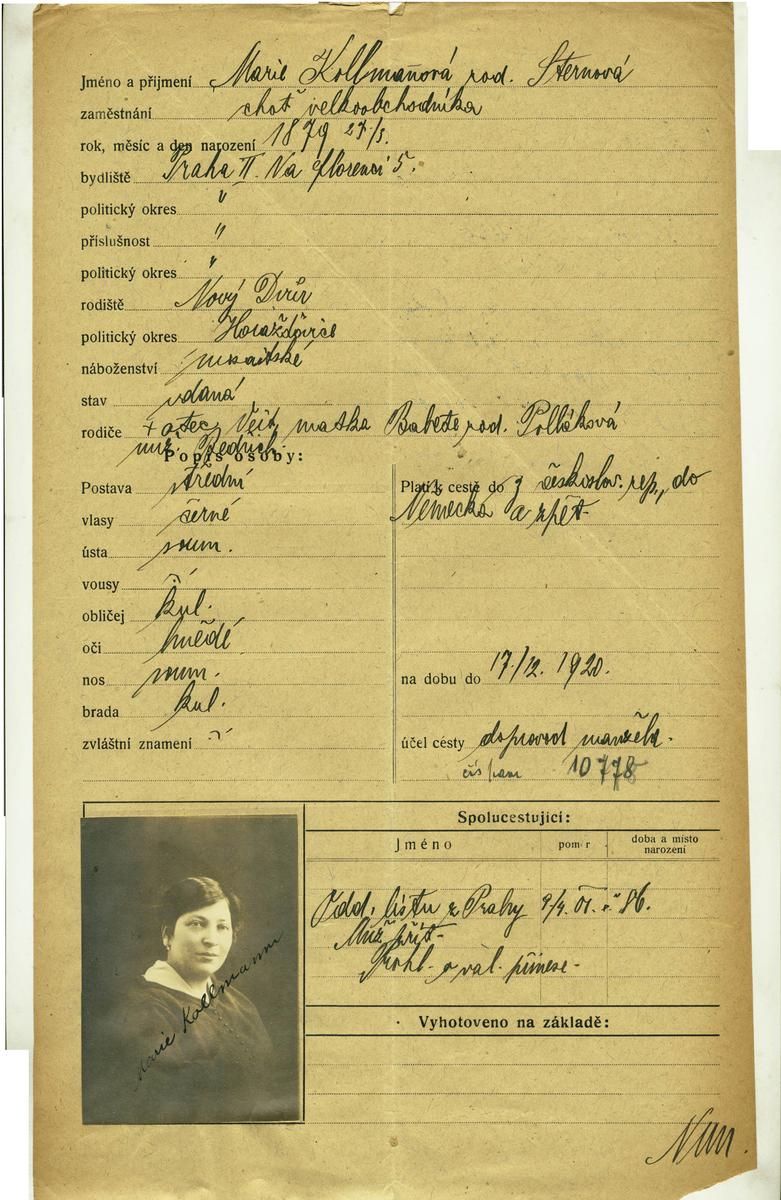 Jméno a příjmení Marie Kollmanová rod. Sternová
zaměstnání choť velkoobchodníka
rok, měsíc a den narození 1879 27/3.
bydliště Praha II. Na Florenci 5.
politický okres "
příslušnost "
politický okres "
rodiště Nový Dvůr
politický okres Horažďovice
náboženství mosaitské
stav vdaná
rodiče + otec Veit, matka Babete rod. Polláková
muž Bedřich.
Popis osoby:
Postava střední
vlasy černé
ústa soum.
vousy
obličej kul.
oči hnědé
nos soum.
brada kul.
zvláštní znamení
Platí k cestě do z českoslov. rep., do
Německa a zpět.
na dobu do 17./12. 1920.
účel cesty doprovod manžela.
čís. 10778
Spolucestující:
Jméno poměr doba a místo narození
Odd. listu z Prahy 9/4. 01. č. 86.
Muž
a val. přinese.
Vyhotoveno na základě:
Marie Kollmann